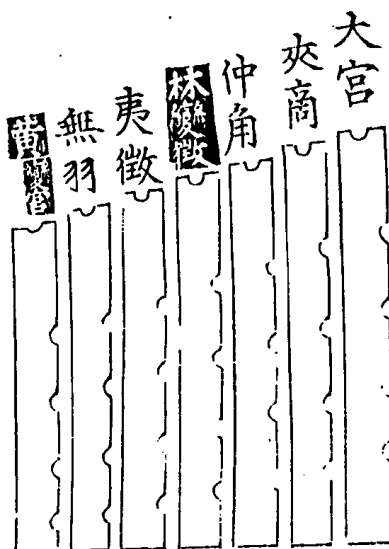 大宮
夾商
仲角
林變徵
夷徵
無羽
黃變宮